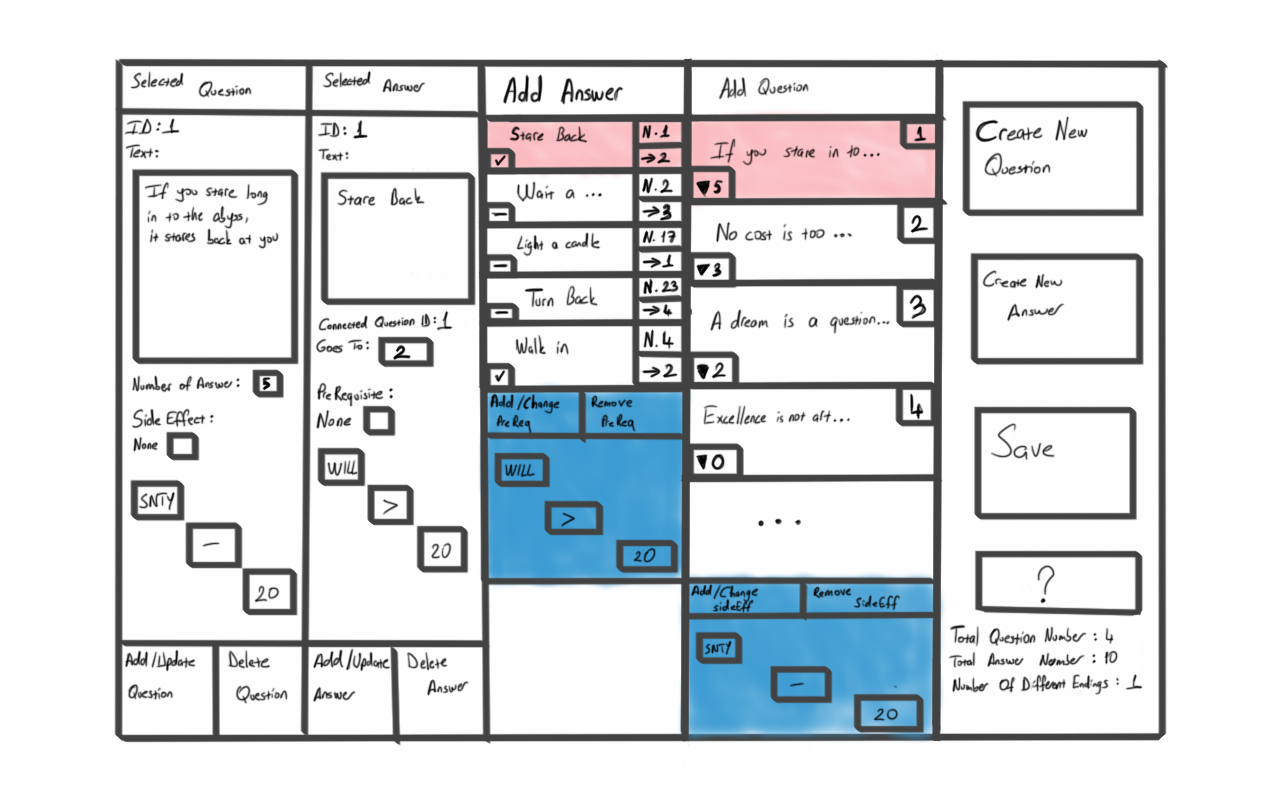 Selected Question
ID: 1
Text:
If you stare long
in to the abyss,
it stares back at you
Number of Answer: 5
Side Effect:
None
SNTY
-
20
Add/Update
Question
Delete
Question
Selected Answer
ID: 1
Text:
Stare Back
Connected Question ID: 1
Goes To: 2
PreRequisite:
None
WILL
>
20
Add/Update
Answer
Delete
Answer
Add Answer
Stare Back
N.1
✓
→2
Wait a ...
N.2
-
→3
Light a candle
N.17
-
→1
Turn Back
N.23
-
→4
Walk in
N.4
✓
→2
Add/Change
PreReq
Remove
PreReq
WILL
>
20
Add Question
1
If you stare in to...
▼5
2
No cost is too ...
▼3
3
A dream is a question...
▼2
4
Excellence is not art...
▼0
...
Add/Change
sideEff
Remove
SideEff
SNTY
-
20
Create New
Question
Create New
Answer
Save
?
Total Question Number: 4
Total Answer Number: 10
Number Of Different Endings: 1